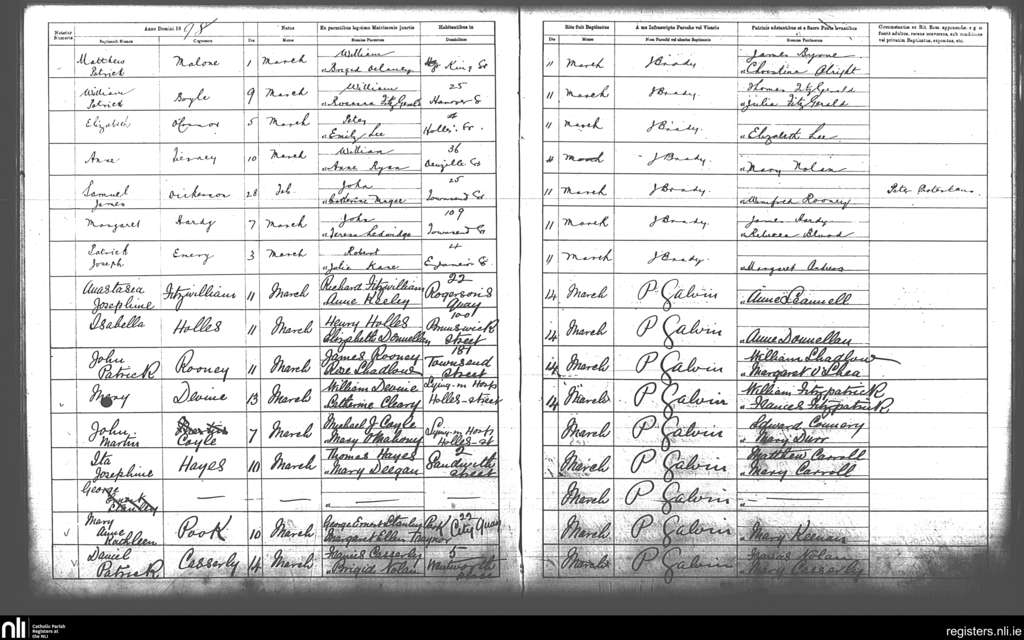 Anno Domini 1898
Natus
Ex parentibus legitimo Matrimonio junctis
Habitantibus in
Rite fuit Baptizatus
A me Infrascripto Parocho vel Vicario
Notatur Numerus
Baptizati Nomen
Cognomen
Die
Mense
Nomina Parentum
Domicilium
Die
Mense
Nomina Patrinorum
Matthew Patrick Malone 1 March William Brigid Delaney King St 11 March J Brady James Byrne Christina
William Patrick Boyle 9 March William Rosanna FitzGerald 25 Hanover St 11 March J Brady Thomas FitzGerald Julia FitzGerald
Elizabeth O'Connor 5 March Peter Emily Lee Holles St 11 March J Brady Elizabeth Lee
Anne Tierney 10 March William Anne Ryan 36 Denzille St 11 March J Brady Mary Nolan
Samuel James Dickenson 28 Feb John Catherine Magee 25 Townsend St 11 March J Brady Winifred Rooney
Margaret Dardy 7 March John Teresa Ledwidge 109 Townsend St 11 March J Brady James Dardy Rebecca
Patrick Joseph Emery 3 March Robert Julia Kane 4 11 March J Brady Margaret
Anastasia Josephine Fitzwilliams 11 March Richard Fitzwilliam Anne Keeley 22 Rogerson's Quay 14 March P Galvin Anne Scannell
Isabella Holles 11 March Henry Holles Elizabeth Donnellan 100 Brunswick Street 14 March P Galvin Anne Donnellan
John Patrick Rooney 11 March James Rooney Rose Chadlow 181 Townsend Street 14 March P Galvin William Chadlow Margaret O'Shea
Mary Devine 13 March William Devine Catherine Cleary Lying-in Hosp Holles-street 14 March P Galvin William Fitzpatrick Frances Fitzpatrick
John Martin Coyle 7 March Michael J Coyle Mary O'Mahony Lying-in Hosp Holles-st March P Galvin Edward Mary Durr
Ita Josephine Hayes 10 March Thomas Hayes Mary Deegan 2 Sandwith street March P Galvin Matthew Carroll Mary Carroll
George — — — March P Galvin —
Mary Anne Kathleen Pook 10 March George Ernest Stanley Pook Margaret Ellen Traynor 22 City Quay March P Galvin Mary Keenan
Daniel Patrick Casserly 14 March Francis Casserly Brigid Nolan 5 Wentworth place March P Galvin Nolan Mary Casserly
nli
Catholic Parish Registers at the NLI
registers.nli.ie